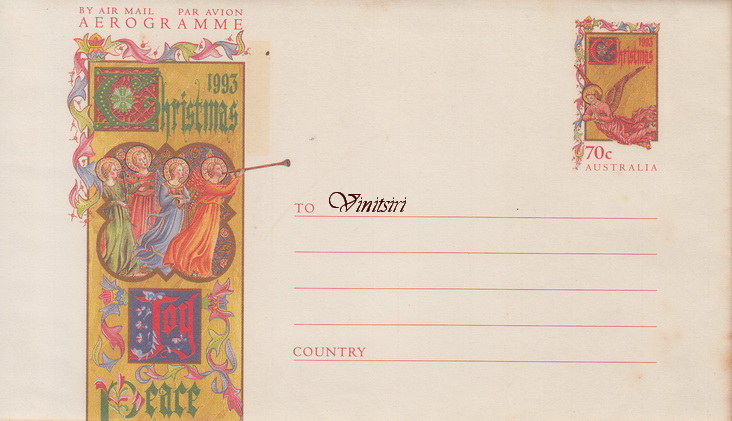 BY AIR MAIL PAR AVION
AEROGRAMME
1993
Christmas
Joy
Peace
1993
Christmas
70c
AUSTRALIA
TO Vinitsiri
COUNTRY